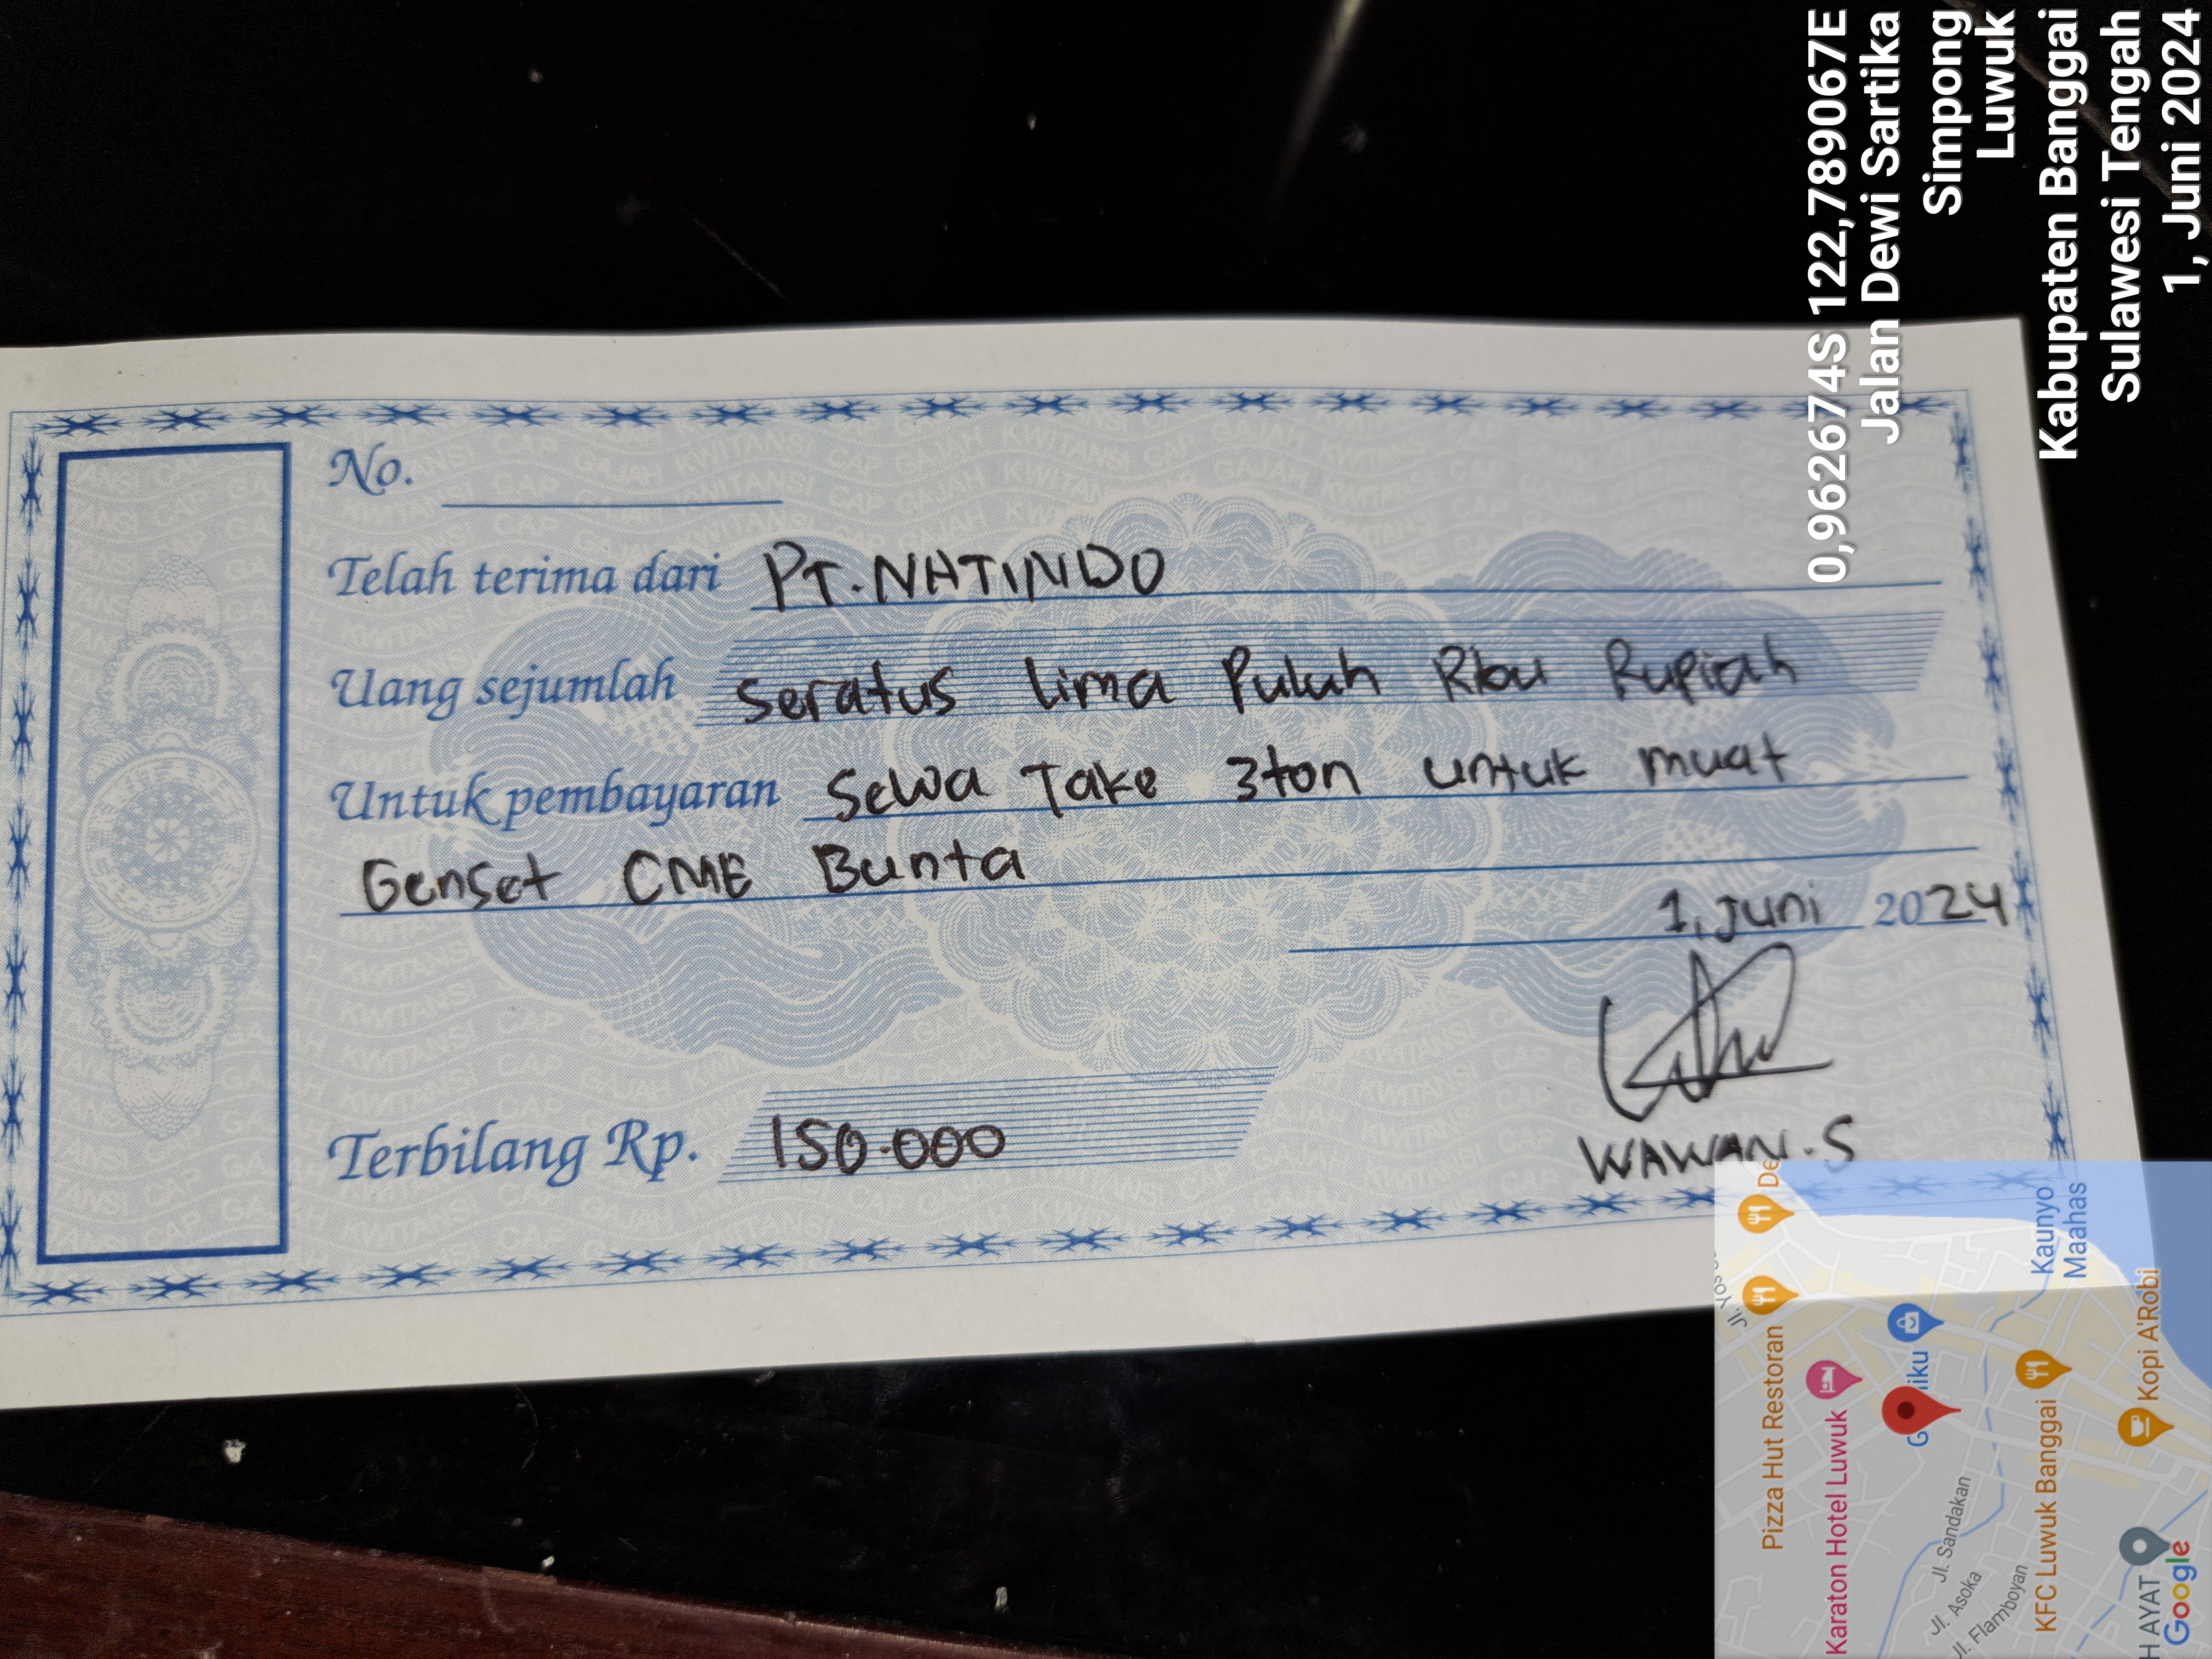 No.
Telah terima dari PT. NATINDO
Uang sejumlah seratus lima Puluh Ribu Rupiah
Untuk pembayaran Sewa Take 3ton untuk muat
Genset CME Bunta
1, Juni 2024
Terbilang Rp. 150.000
WAWAN. S
0,962674S 122,789067E
Jalan Dewi Sartika
Simpong
Luwuk
Kabupaten Banggai
Sulawesi Tengah
1, Juni 2024
Pizza Hut Restoran
Karaton Hotel Luwuk
KFC Luwuk Banggai
Kopi A'Robi
Kaunyo
Maahas
Jl. Sandakan
Jl. Asoka
Jl. Flamboyan
H AYAT
Google